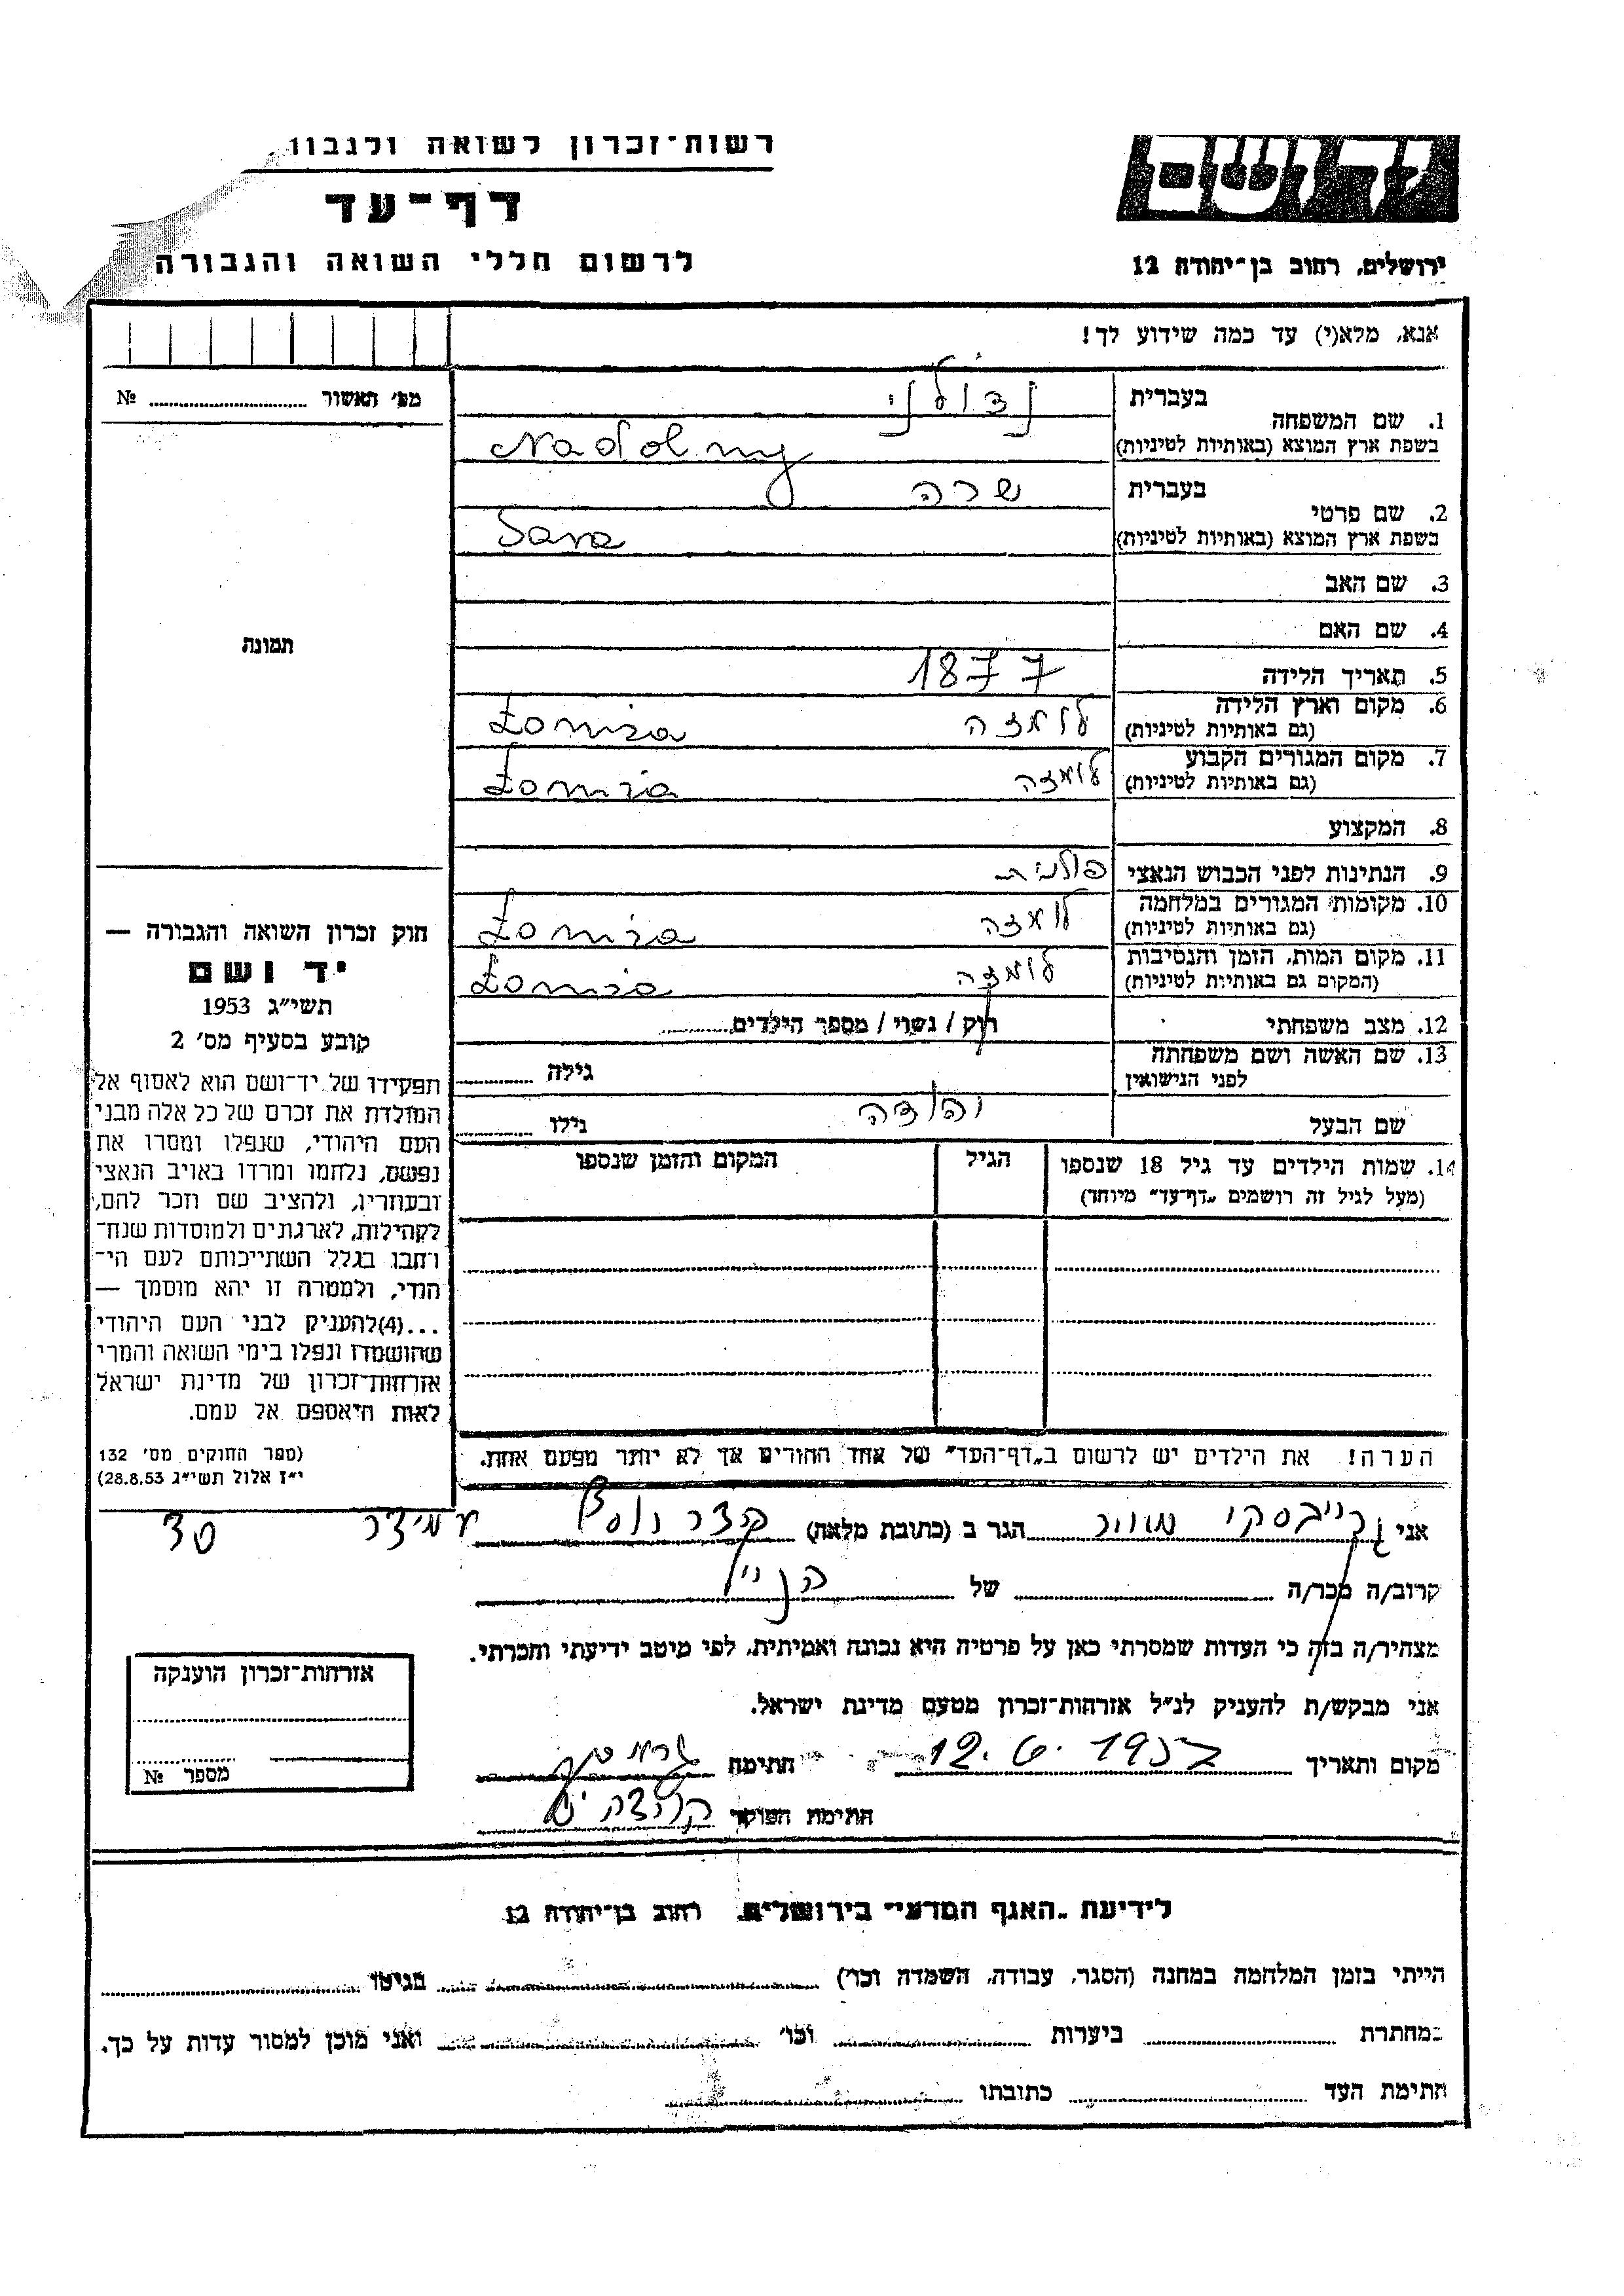 רשות־זכרון לשואה ולגבו
דף־עד
לרשום חללי השואה והגבורה
יד ושם
ירושלים, רחוב בן־יהודה 12
אנא, מלא(י) עד כמה שידוע לך!
מס׳ תאשור № 
1. שם המשפחה
בעברית נדולני
בשפת ארץ המוצא (באותיות לטיניות) Nadolny
2. שם פרטי
בעברית שרה
בשפת ארץ המוצא (באותיות לטיניות) Sara
3. שם האב
4. שם האם
תמונה
5. תאריך הלידה 1877
6. מקום וארץ הלידה
(גם באותיות לטיניות) לומזה Łomza
7. מקום המגורים הקבוע
(גם באותיות לטיניות) לומזה Łomza
8. המקצוע
9. הנתינות לפני הכבוש הנאצי פולנית
10. מקומות המגורים במלחמה
(גם באותיות לטיניות) לומזה Łomza
11. מקום המות, הזמן והנסיבות
(המקום גם באותיות לטיניות) לומזה Łomza
12. מצב משפחתי רוק / נשוי / מספר הילדים
13. שם האשה ושם משפחתה
לפני הנישואין גילה
שם הבעל יהודה גילו
14. שמות הילדים עד גיל 18 שנספו
(מעל לגיל זה רושמים „דף־עד״ מיוחד)
הגיל
המקום והזמן שנספו
הערה! את הילדים יש לרשום ב„דף־העד״ של אחד ההורים אך לא יותר מפעם אחת.
חוק זכרון השואה והגבורה —
יד ושם
תשי״ג 1953
קובע בסעיף מס׳ 2
תפקידו של יד־ושם הוא לאסוף אל
המולדת את זכרם של כל אלה מבני
העם היהודי, שנפלו ומסרו את
נפשם, נלחמו ומרדו באויב הנאצי
ובעוזריו, ולהציב שם וזכר להם,
לקהילות, לארגונים ולמוסדות שנח־
רבו בגלל השתייכותם לעם הי־
הודי, ולמטרה זו יהא מוסמך —
...(4)להעניק לבני העם היהודי
שהושמדו ונפלו בימי השואה והמרי
אזרחות־זכרון של מדינת ישראל
לאות היאספם אל עמם.
(ספר החוקים מס׳ 132
י״ז אלול תשי״ג 28.8.53)
אני הגר ב (כתובת מלאה)
קרוב/ה מכר/ה של הנ״ל
מצהיר/ה בזה כי העדות שמסרתי כאן על פרטיה היא נכונה ואמיתית, לפי מיטב ידיעתי והכרתי.
אני מבקש/ת להעניק לנ״ל אזרחות־זכרון מטעם מדינת ישראל.
מקום ותאריך 12.6.1957 חתימה
חתימת הפוקד
אזרחות־זכרון הוענקה
מספר №
לידיעת „האגף המדעי״ בירושלים, רחוב בן־יהודה 12
הייתי בזמן המלחמה במחנה (הסגר, עבודה, השמדה וכו׳) בגיטו
במחתרת ביערות וכו׳ ואני מוכן למסור עדות על כך.
חתימת העד כתובתו